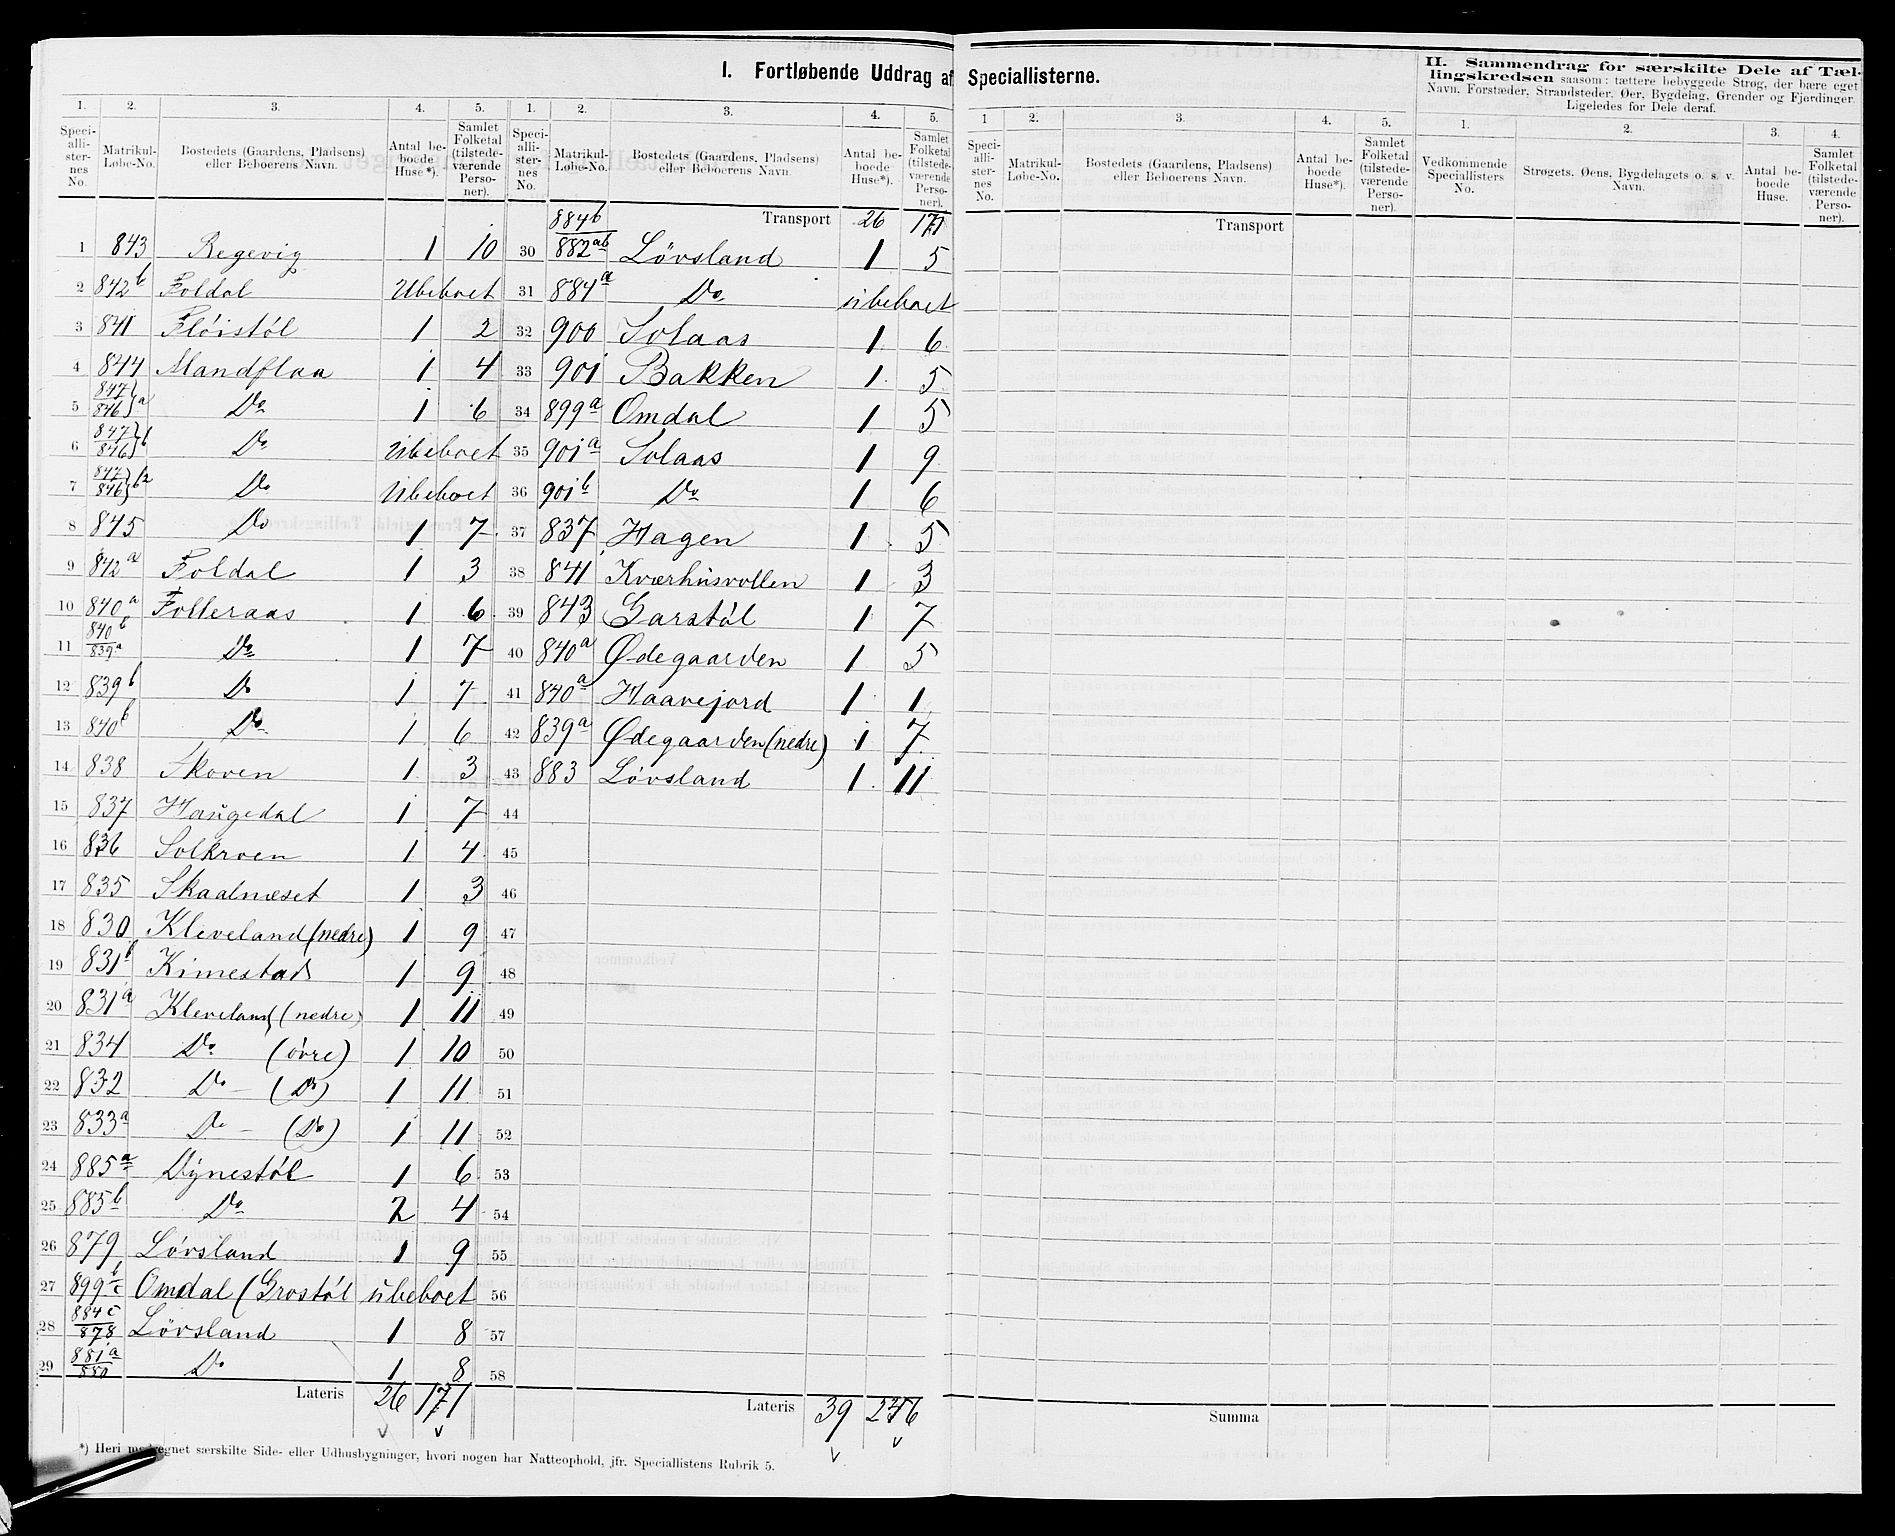 I. Fortløbende Uddrag af Speciallisterne.
II. Sammendrag for særskilte Dele af Tæl-
lingskredsen saasom: tættere bebyggede Strøg, der bære eget
Navn, Forstæder, Strandsteder, Øer, Bygdelag, Grender og Fjordinger.
Ligeledes for Dele deraf.
1. 2. 3. 4. 5. 1. 2. 3. 4. 5.
Speci-alli-ster-nes No. Matrikul-Løbe-No. Bostedets (Gaardens, Pladsens) eller Beboerens Navn. Antal be-boede Huse*). Samlet Folketal (tilstede-værende Perso-ner).
Speci-alli-ster-nes No. Matrikul-Løbe-No. Bostedets (Gaardens, Pladsens) eller Beboerens Navn. Antal be-boede Huse*). Samlet Folketal (tilstede-værende Perso-ner).
1 843 Regevig 1 10
2 842b Foldal Ubeboet
3 841 Fløistøl 1 2
4 844 Mandflaa 1 4
5 847/846}a Do 1 6
6 847/846}b Do Ubeboet
7 847/846}b2 Do Ubeboet
8 845 Do 1 7
9 842a Foldal 1 3
10 840a Folleraas 1 6
11 840b/839a Do 1 7
12 839b Do 1 7
13 840b Do 1 6
14 838 Skoven 1 3
15 837 Haugedal 1 7
16 836 Solkroen 1 4
17 835 Skaalmeset 1 3
18 830 Kleveland (nedre) 1 9
19 831b Kimestad 1 9
20 831a Kleveland (nedre) 1 11
21 834 Do (övre) 1 10
22 832 Do - (Do) 1 11
23 833a Do - (Do) 1 11
24 885a Dynestøl 1 6
25 885b Do 2 4
26 879 Løvsland 1 9
27 899b c Omdal (Grostøl ubeboet
28 884c/878 Løvsland 1 8
29 881a/880 Do 1 8
Lateris 26 171
Transport 26 171
30 884b/882ab Løvsland 1 5
31 884a Do ubeboet
32 900 Solaas 1 6
33 901 Bakken 1 5
34 899a Omdal 1 5
35 901a Solaas 1 9
36 901b Do 1 6
37 837 Hagen 1 5
38 841 Kværhusvollen 1 3
39 843 Garstøl 1 7
40 840a Ødegaarden 1 5
41 840a Haavejord 1 1
42 839a Ødegaarden (nedre) 1 7
43 883 Løvsland 1 11
44
45
46
47
48
49
50
51
52
53
54
55
56
57
58
Lateris 39 246
*) Heri medregnet særskilte Side- eller Udhusbygninger, hvori nogen har Natteophold, jfr. Speciallistens Rubrik 5.
1 2. 3. 4. 5. 1. 2. 3. 4.
Speci-alli-ster-nes No. Matrikul-Løbe-No. Bostedets (Gaardens, Pladsens) eller Beboerens Navn. Antal be-boede Huse*). Samlet Folketal (tilstede-værende Perso-ner).
Vedkommende Speciallisters No. Strøgets, Øens, Bygdelagets o. s. v. Navn. Antal be-boede Huse. Samlet Folketal (tilstede-værende Perso-ner).
Transport
Summa